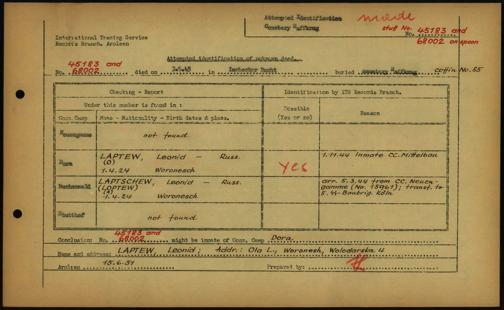 Attempted Identification
Cemetery Haffkrug
made
stuff No. 45183 and
68002 on spoon
International Tracing Service
Records Branch, Arolsen
Attempted identification of unknown dead.
45183 and
No. 68002 died on 3.5.45 in Luebecker Bucht buried cemetery Haffkrug coffin No. 55
Checking - Report
Identification by ITS Records Branch.
Under this number is found in :
Possible
(Yes or no)
Reason
Conc. Camp
Name - Nationality - Birth dates & place.
Neuengamme
not found
Dora
LAPTEW, Leonid - Russ.
(O)
1.4.24 Woronesch
Yes
1.11.44 Inmate CC. Mittelbau
Buchenwald
LAPTSCHEW, Leonid - Russ.
(LOPTEW)
1.4.24 Woronesch
arr. 5.3.44 from CC. Neuen-
gamme (No. 15967); transf. to
5. SS-Baubrig. Köln
Stutthof
not found
45183 and
Conclusion: No. 68002 might be inmate of Conc. Camp Dora.
Name and address: LAPTEW, Leonid; Addr.: Ola L., Woronesh, Wolodarska 4
Arolsen 15.6.51 Prepared by: